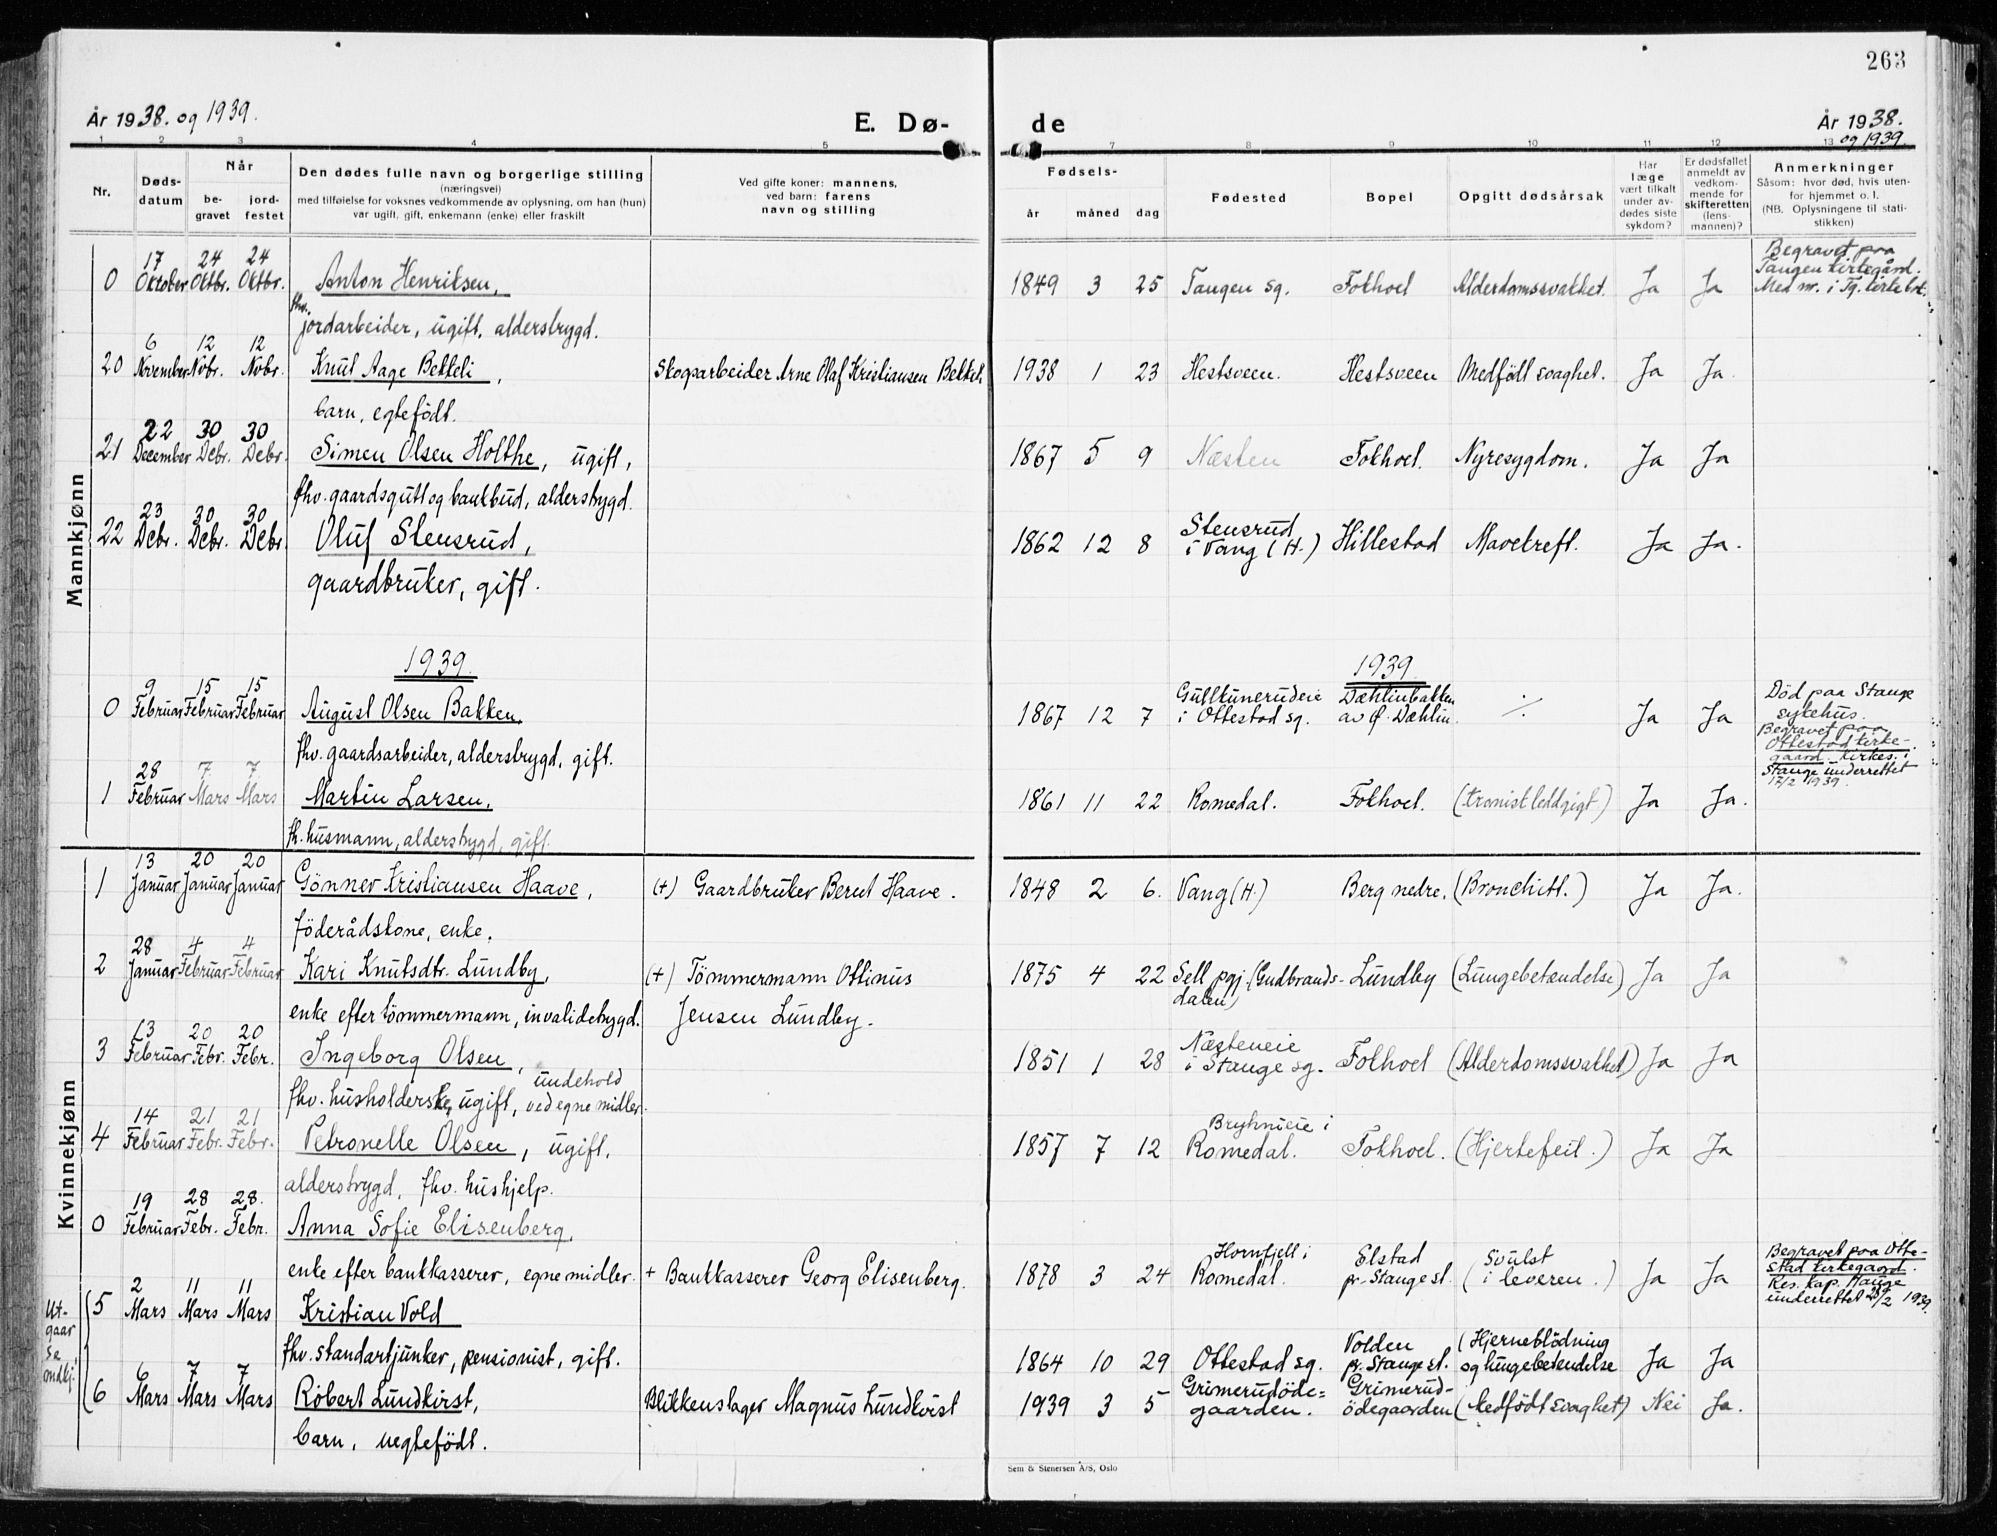 263
År 1938. og 1939.
E. Dø-
de
År 1938.
og 1939.
1 2 3 4 5 7 8 9 10 11 12 13
Nr.
Døds-
datum
Når
be-
gravet
jord-
festet
Den dødes fulle navn og borgerlige stilling
(næringsvei)
med tilføielse for voksnes vedkommende av oplysning, om han (hun)
var ugift, gift, enkemann (enke) eller fraskilt
Ved gifte koner: mannens,
ved barn: farens
navn og stilling
Fødsels-
år måned dag
Fødested
Bopel
Opgitt dødsårsak
Har
læge
vært tilkalt
under av-
dødes siste
sykdom?
Er dødsfallet
anmeldt av
vedkom-
mende for
skifteretten
(lens-
mannen)?
Anmerkninger
Såsom: hvor død, hvis uten-
for hjemmet o. l.
(NB. Oplysningene til stati-
stikken)
Mannkjønn
17 24 24
0 Oktober Oktbr. Oktbr. Anton Henriksen,
fhv. jordarbeider, ugift, alderstrygd.
1849 3 25 Tangen sg. Fokhoel Alderdomssvakhet. Ja Ja
Begravet paa
Tangen kirkegård.
Med nr. i Tg. kirkebok.
6 12 12
20 November Nobr. Nobr. Knut Aage Bekkeli,
barn, egtefödt.
Skogsarbeider Arne Olaf Kristiansen Bekkeli
1938 1 23 Hestsveen. Hestsveen Medfödt svaghet. Ja Ja.
22 30 30
21 December Debr. Debr. Simen Olsen Holthe, ugift,
fhv. gaardsgutt og bankbud, alderstrygd.
1867 5 9 Næsten Fokhoel. Nyresygdom. Ja Ja
23 30 30
22 Debr. Debr. Debr. Oluf Stensrud,
gaardbruker, gift.
1862 12 8 Stensrud
i Vang (H.) Hillestad Mavekreft. Ja Ja.
1939.
1939
9 15 15
0 Februar Februar Februar August Olsen Bakken.
fhv. gaardsarbeider, alderstrygd, gift.
1867 12 7 Gullkunerudeie
i Ottestad sg. Dæhlinbakken
av Ø. Dæhlin. ./. Ja Ja
Död paa Stange
sykehus.
Begravet paa
Ottestad kirke-
gaard. Kirkes. i
Stange underrettet
17/2 1939.
28 7 7
1 Februar Mars Mars Martin Larsen,
fh. husmann, alderstrygd, gift.
1861 11 22 Romedal. Fokhoel. (kronist leddgigt) Ja Ja.
Kvinnekjønn
13 20 20
1 Januar Januar Januar Gönner Kristiansen Haave,
föderådskone, enke.
(+) Gaardbruker Bernt Haave.
1848 2 6. Vang (H.) Berg nedre. (Bronchitt.) Ja Ja.
28 4 4
2 Januar Februar Februar Kari Knutsdtr. Lundby,
enke efter tömmermann, invalidetrygd.
(+) Tömmermann Ottinus
Jensen Lundby.
1875 4 22 Sell pgj. (Gudbrands-
dalen) Lundby (Lungebetændelse) Ja Ja
13 20 20
3 Februar Febr. Febr. Ingeborg Olsen,
fhv. husholderske, ugift, undehold
ved egne midler.
1851 1 28 Næsteneie
i Stange sg. Fokhoel (Alderdomssvakhet) Ja Ja
14 21 21
4 Februar Febr. Febr. Petronelle Olsen, ugift,
alderstrygd, fhv. hushjelp.
1857 7 12 Bryhnieie i
Romedal. Fokhoel. (Hjertefeil.) Ja Ja
19 28 28.
0 Februar Febr. Febr. Anna Sofie Elisenberg,
enke efter bankkasserer, egne midler.
+ Bankkasserer Georg Elisenberg.
1878 3 24 Hornfjell i
Romedal. Elstad
pr. Stange st. (Svulst
i leveren.) Ja Ja
Begravet paa Otte-
stad kirkegaard.
Res. kap. Hauge
underrettet 28/2 1939.
Ut-
gaar
Se
mdkj.
2 11 11
5 Mars Mars Mars Kristian Vold
fhv. standartjunker, pensionist, gift.
1864 10 29 Ottestad sg. Volden
pr. Stange st. (Hjerneblödning
og lungebetendelse Ja Ja
6 7 7
6 Mars Mars Mars Robert Lundkvist,
barn, uegtefödt.
Blikkenslager Magnus Lundkvist
1939 3 5 Grimerudöde=
gaarden. Grimerud-
ödegaarden (Medfödt svaghet) Nei Ja.
Sem & Stenersen A/S, Oslo